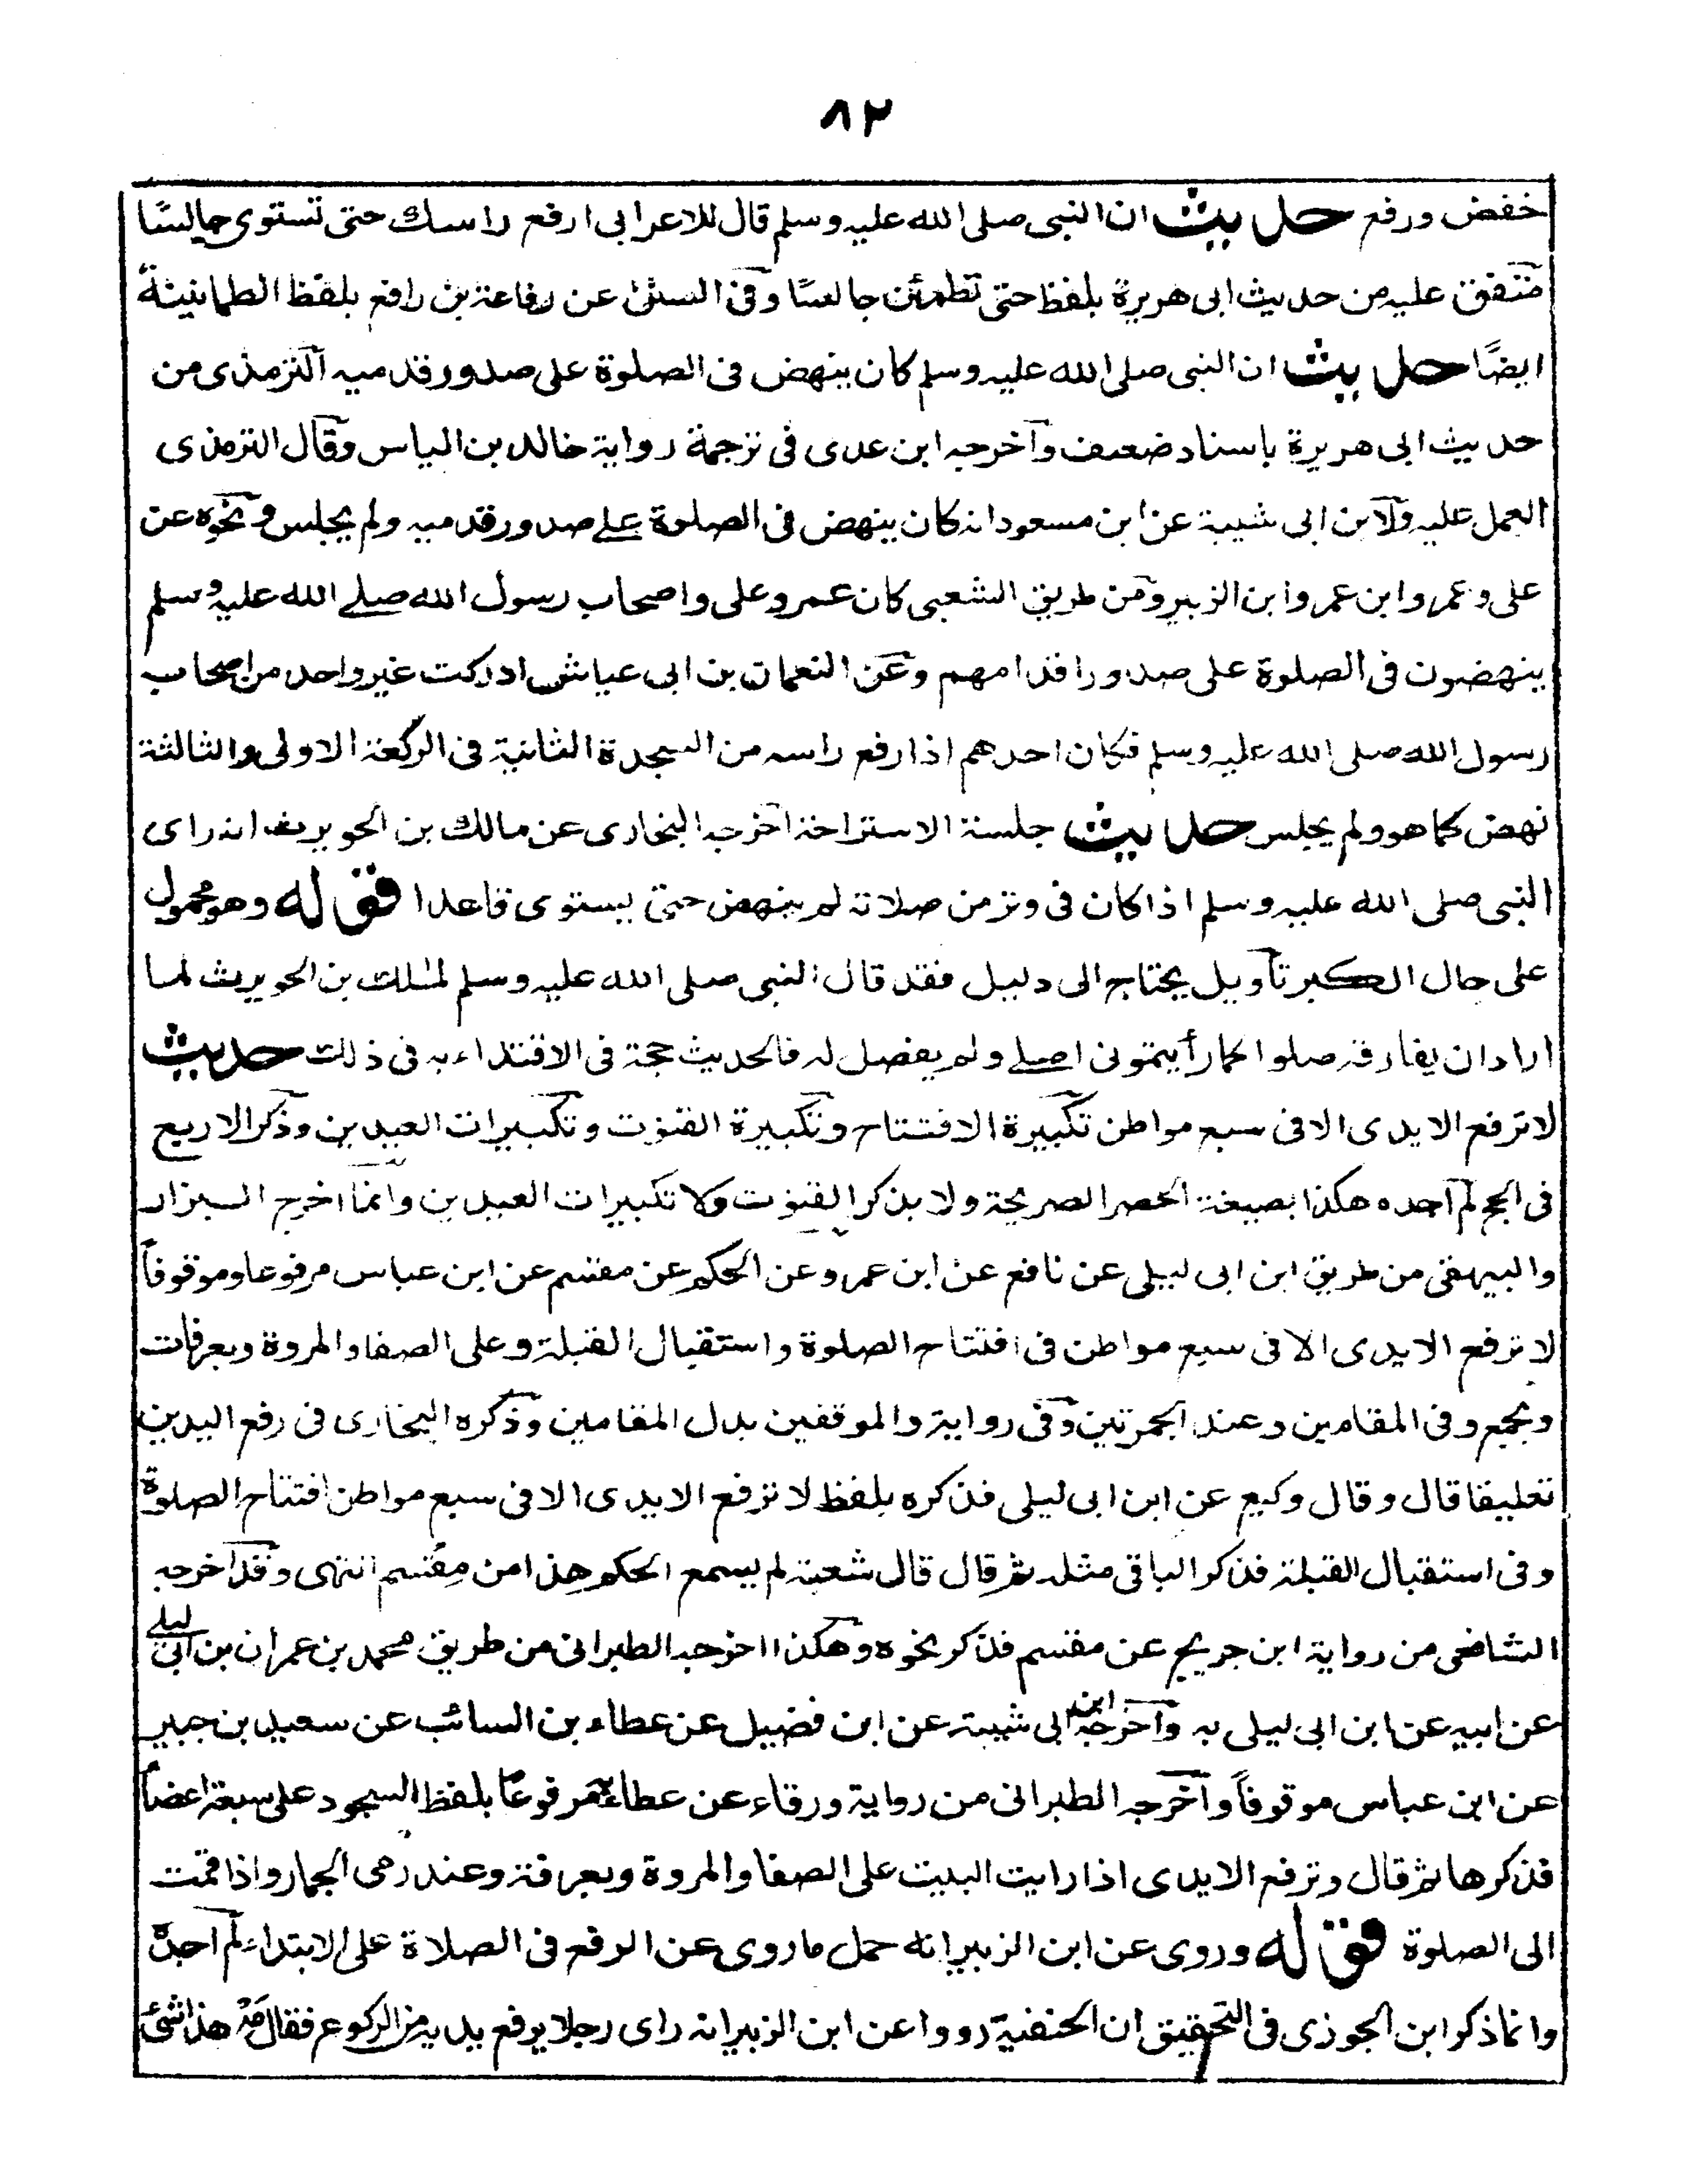 ٨٢
خفض ورفع حديث ان النبى صلى الله عليه وسلم قال للاعرابى ارفع راسك حتى تستوى جالسًا
متفق عليه من حديث ابى هريرة بلفظ حتى تطمئن جالسًا وفى السنن عن رفاعة بن رافع بلفظ الطمانينة
ايضًا حديث ان النبى صلى الله عليه وسلم كان ينهض فى الصلوة على صدور قدميه الترمذى من
حديث ابى هريرة باسناد ضعيف واخرجه ابن عدى فى ترجمة رواية خالد بن الياس وقال الترمذى
العمل عليه ولابن ابى شيبة عن ابن مسعود انه كان ينهض فى الصلوة على صدور قدميه ولم يجلس ونحوه عن
على وعمر وابن عمر وابن الزبير ومن طريق الشعبى كان عمر وعلى واصحاب رسول الله صلے الله عليه وسلم
ينهضون فى الصلوة على صدور اقدامهم وعن النعمان بن ابى عياش ادركت غير واحد من اصحاب
رسول الله صلى الله عليه وسلم فكان احدهم اذا رفع راسه من السجدة الثانية فى الركعة الاولى والثالثة
نهض كما هو ولم يجلس حديث جلسة الاستراحة اخرجه البخارى عن مالك بن الحويرث انه راى
النبى صلى الله عليه وسلم اذا كان فى وتر من صلاته لم ينهض حتى يستوى قاعدا قوله وهو محمول
على حال الكبر تاويل يحتاج الى دليل فقد قال النبى صلى الله عليه وسلم لمٰلك بن الحويرث لما
اراد ان يفارقه صلوا كما رأيتمونى اصلے ولم يفصل له فالحديث حجة فى الاقتداء به فى ذلك حديث
لا ترفع الايدى الا فى سبع مواطن تكبيرة الافتتاح وتكبيرة القنوت وتكبيرات العيدين وذكر الاربع
فى الحج لم اجده هكذا بصيغة الحصر الصريحة ولا بذكر القنوت ولا تكبيرات العيدين وانما اخرج البزار
والبيهقى من طريق ابن ابى ليلى عن نافع عن ابن عمر وعن الحكم عن مقسم عن ابن عباس مرفوعا وموقوفاً
لا ترفع الايدى الا فى سبع مواطن فى افتتاح الصلوة واستقبال القبلة وعلى الصفا والمروة وبعرفات
وبجمع وفى المقامين وعند الجمرتين وفى رواية والموقفين بدل المقامين وذكره البخارى فى رفع اليدين
تعليقا قال وقال وكيع عن ابن ابى ليلى فذكره بلفظ لا ترفع الايدى الا فى سبع مواطن افتتاح الصلوة
وفى استقبال القبلة فذكر الباقى مثله ثم قال قال شعبة لم يسمع الحكم هذا من مقسم انتهى وقد اخرجه
الشافعى من رواية ابن جريج عن مقسم فذكر نحوه وهكذا اخرجه الطبرانى من طريق محمد بن عمران بن ابى ليلے
عن ابيه عن ابن ابى ليلى به واخرجه ابن ابى شيبة عن ابن فضيل عن عطاء بن السائب عن سعيد بن جبير
عن ابن عباس موقوفاً واخرجه الطبرانى من رواية ورقاء عن عطاء مرفوعًا بلفظ السجود على سبعة اعضاً
فذكرها ثم قال وترفع الايدى اذا رايت البيت على الصفا والمروة وبعرفة وعند رمى الجمار واذا قمت
الى الصلوة قوله وروى عن ابن الزبير انه حمل ما روى عن الرفع فى الصلاة على الابتداء لم اجده
وانما ذكر ابن الجوزى فى التحقيق ان الحنفية رووا عن ابن الزبير انه راى رجلا يرفع يديه من الركوع فقال مَهْ هذا شئ